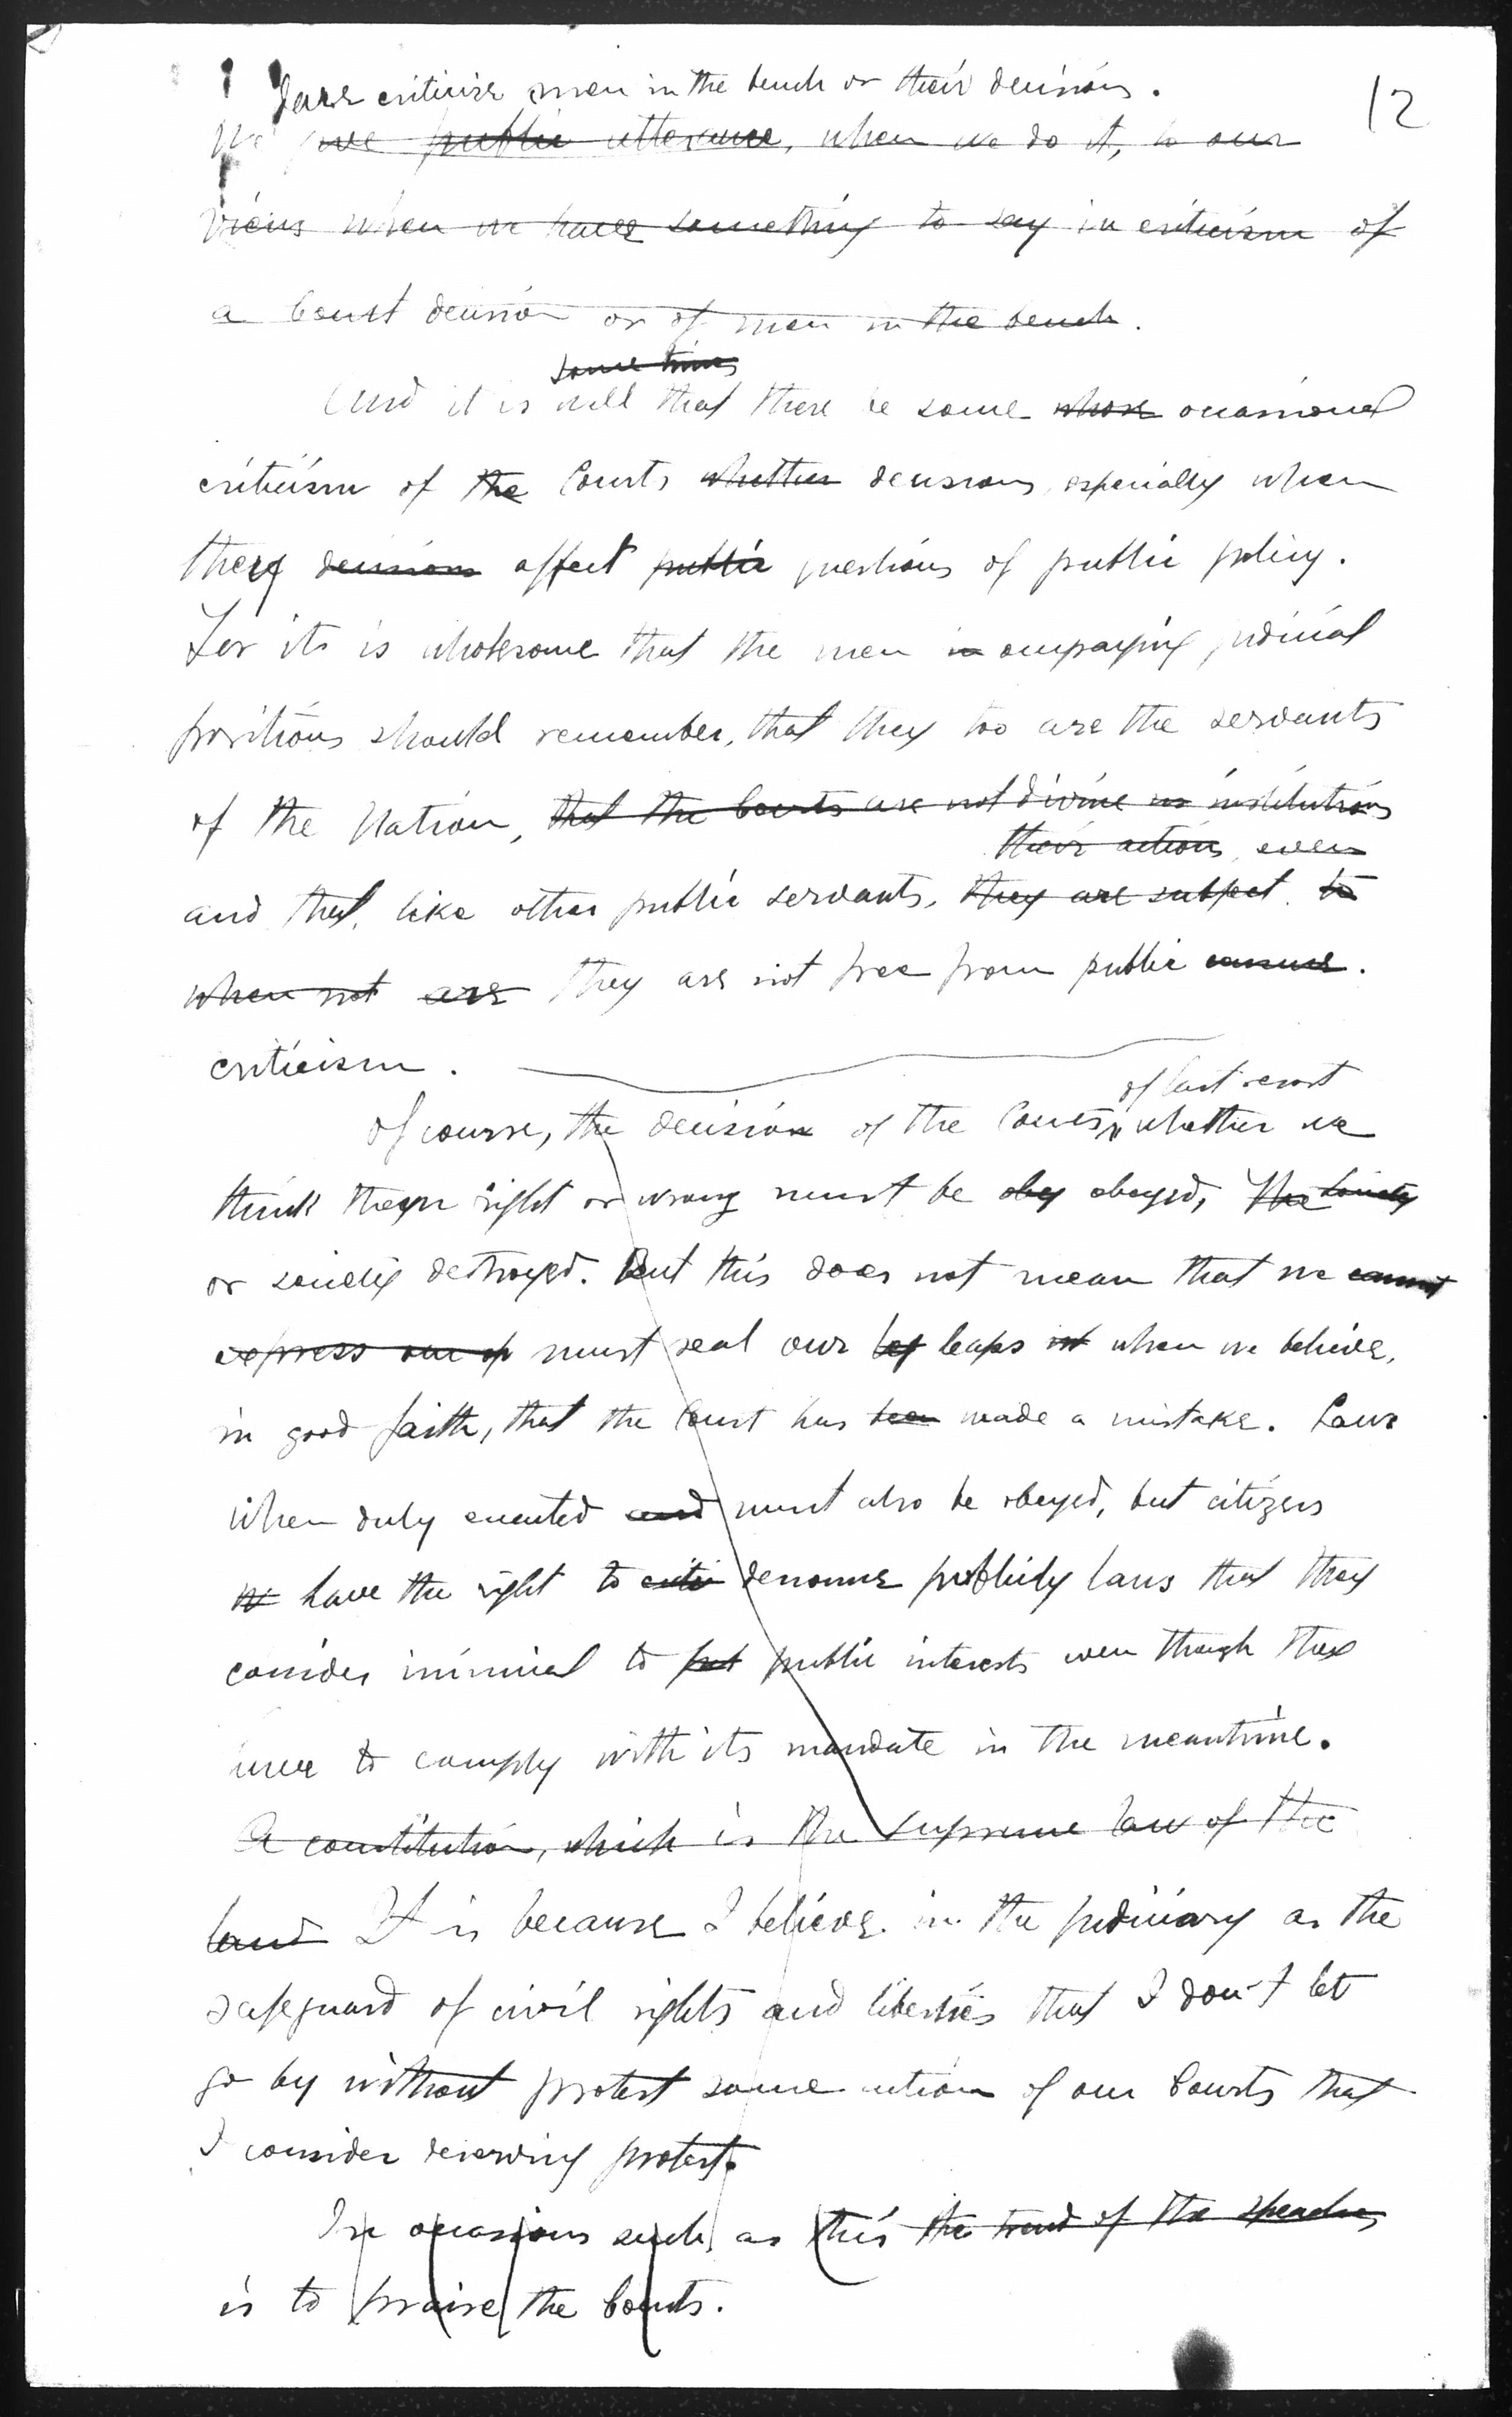 12
dare criticize men in the bench or their decisions.
We give public utterance, when we do it, to our
views when we have something to say in criticism of
a Court decision or of men in the bench.
some times
And it is well that there be some whose occasional
criticism of the Courts whether decisions, especially when
they decisions affect public questions of public policy.
For its is wholesome that the men in occupaying judicial
positions should remember, that they too are the servants
of the Nation, that the Courts are not divine in institutions
their actions, even
and that, like other public servants, they are subject to
when not are they are not free from public censure.
criticism.
of last resort
Of course, the decision of the Courts, whether we
think them right or wrong must be obey obeyed, the society
or society destroyed. But this does not mean that we cannot
express our op must seal our leps when we believe,
in good faith, that the Court has been made a mistake. Laws
When duly enacted and must also be obeyed, but citizens
have the right to criti denounce publicly laws that they
consider inimical to pub public interests even though they
have to comply with its mandate in the meantime.
A constitution, which is the supreme law of the
land It is because I believe in the judiciary as the
safeguard of civil rights and liberties that I don't let
go by without protest some action of our Courts that
I consider deserving protest.
In occasions such as this the trend of the speaches
is to praise the Courts.